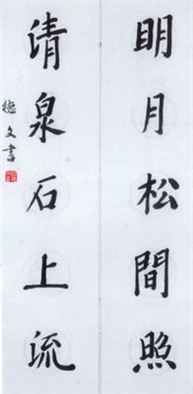 明月松間照
清泉石上流
德文書